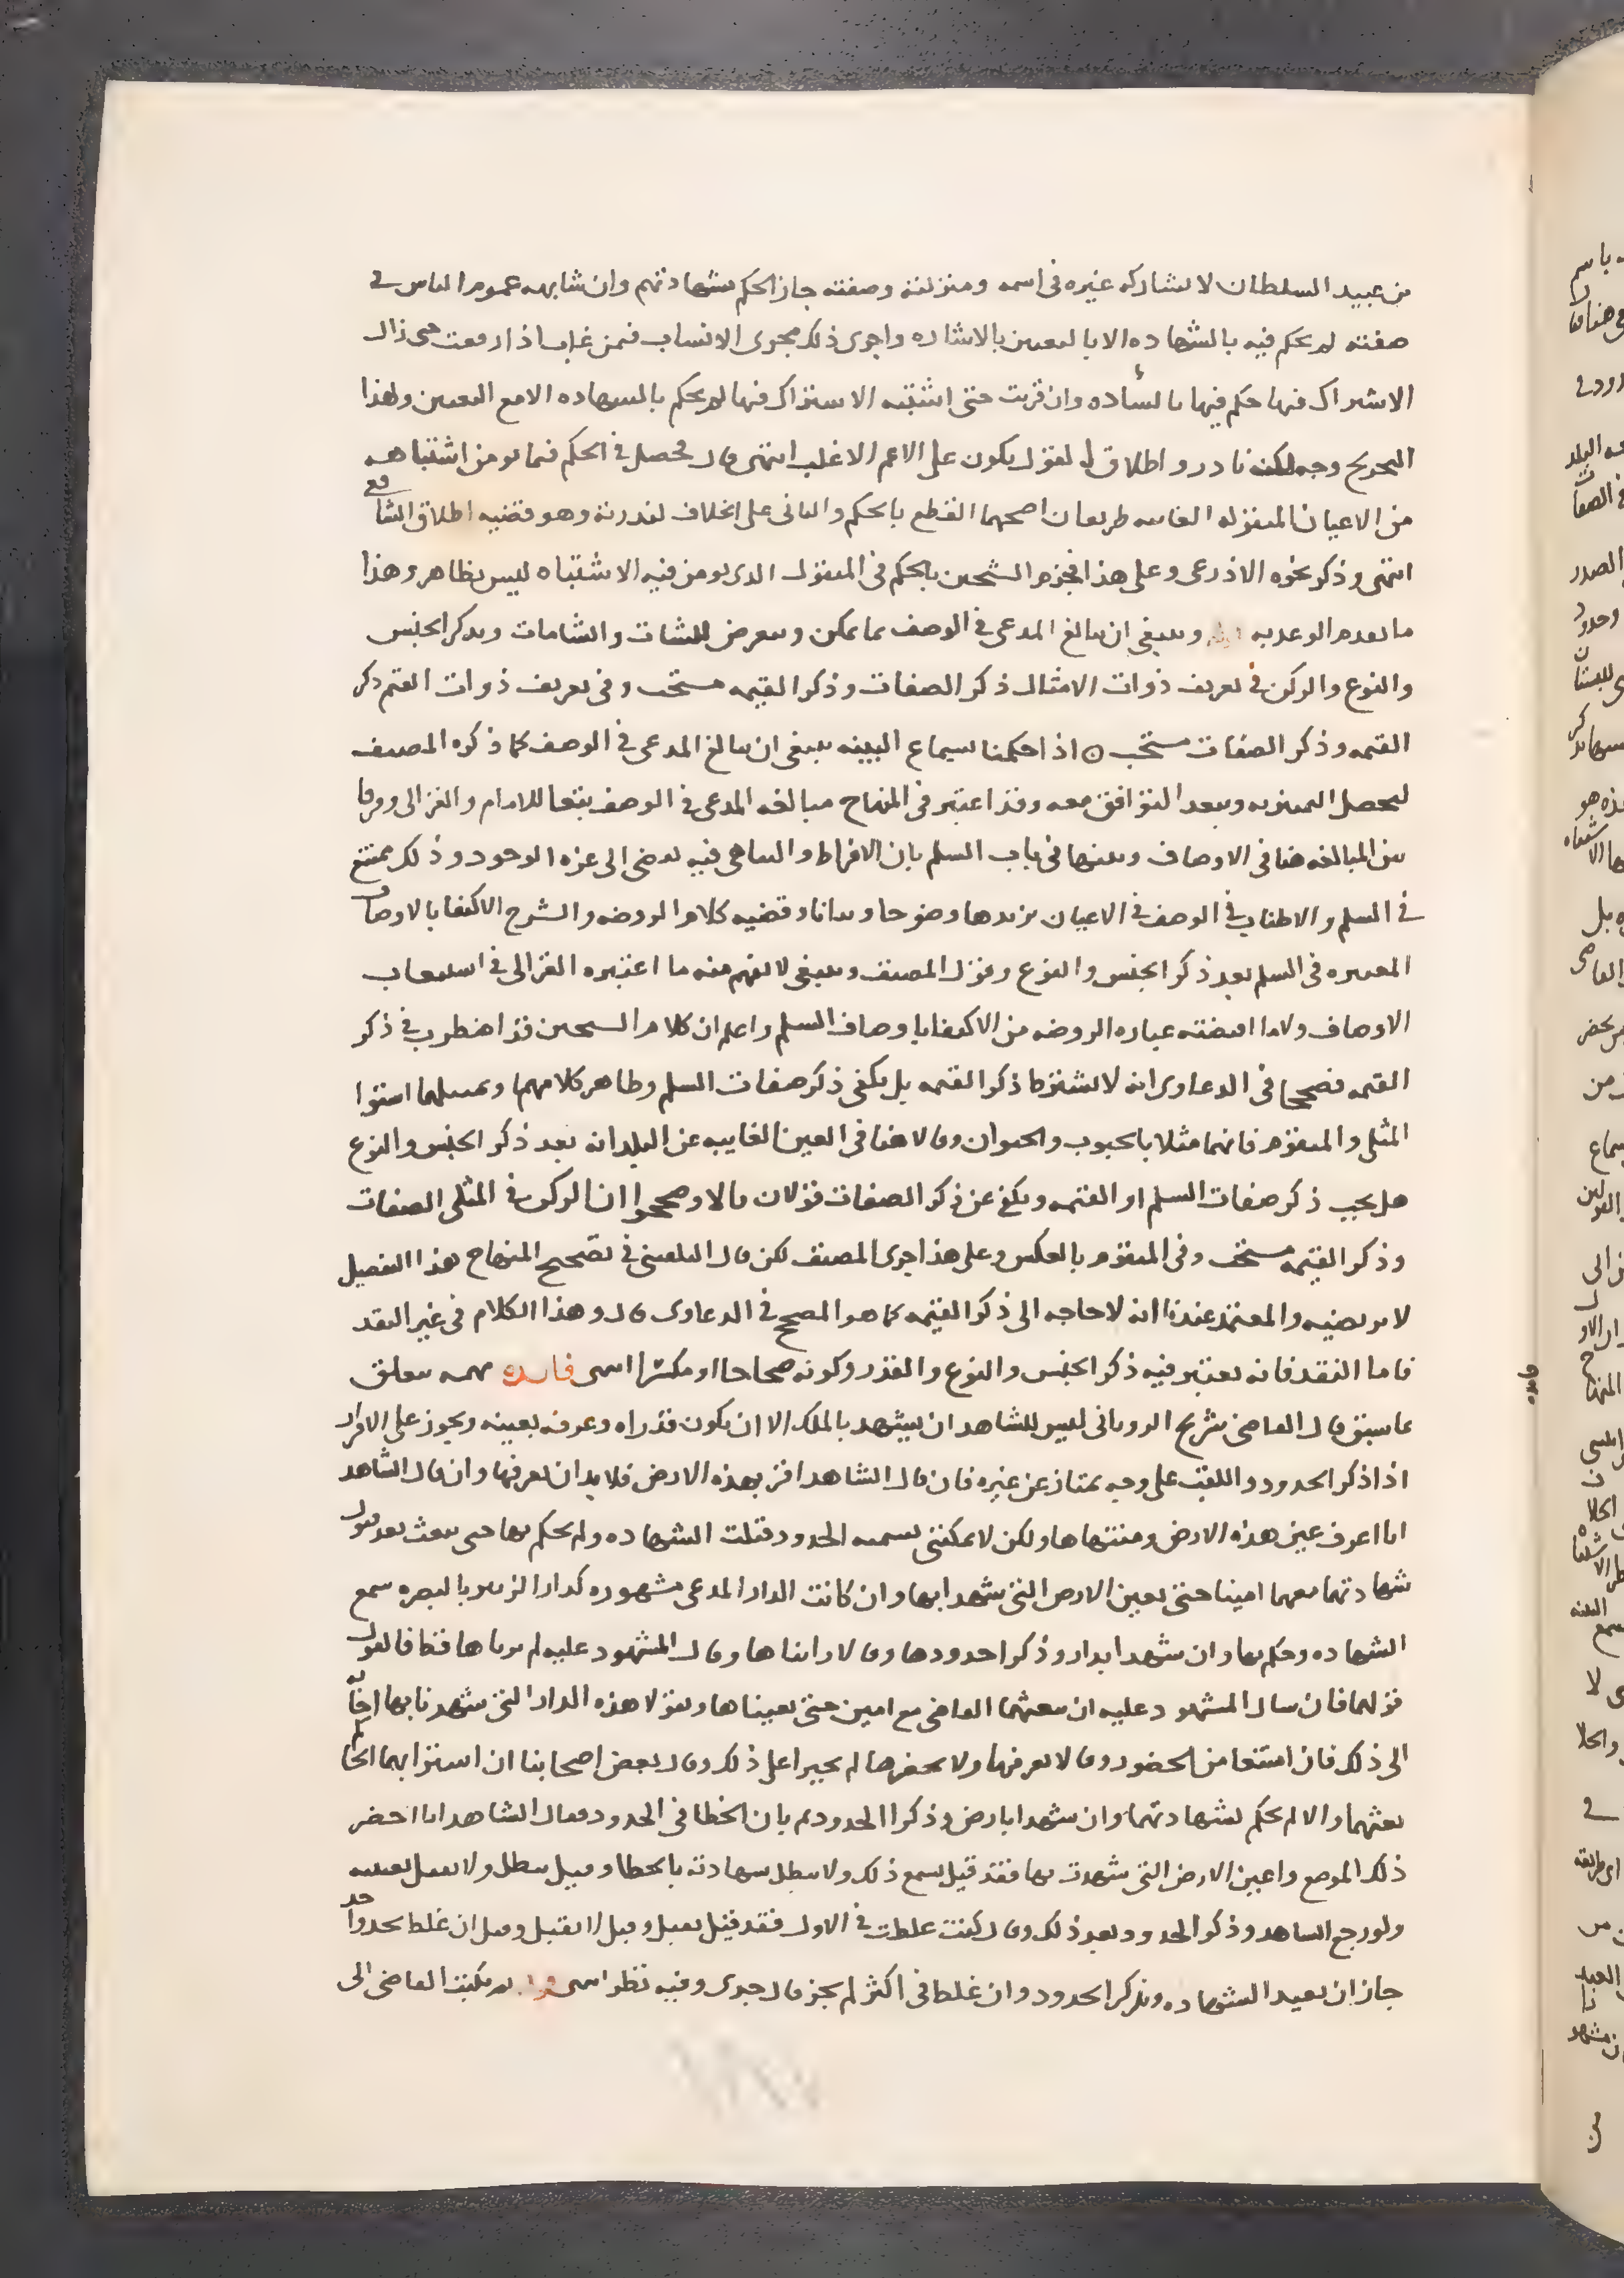 من عبيد السلطان لا يشاركه غيره في اسمه ومنزلته وصفته جاز الحكم بشهادتهم وان شابهه عموم الناس في
صفته لم يحكم فيه بالشهاده الا بالتعيين بالاشاره واجرى ذلك مجرى الانساب فمن غاب اذا رفعت حتى زال
الاشتراك فيها حكم فيها بالشهاده وان قربت حتى اشتبه الاشتراك فيها لم يحكم بالشهاده الا مع التعيين ولهذا
التخريج وجه لكنه نادر واطلاق القول يكون على الاعم الاغلب انتهى قال فحصل في الحكم فيما يومن اشتباهه
من الاعيان المنقوله الغايبه طريقان اصحهما القطع بالحكم والثاني على الخلاف لندرته وهو قضيه اطلاق الشافعي
انتهى وذكر نحوه الاذرعي وعلى هذا فجزم الشيخين بالحكم في المنقول الذي يومن فيه الاشتباه ليس بظاهر وهذا
ما تقدم الوعد به وينبغي ان يبالغ المدعي في الوصف بما يمكن ويتعرض للشيات والشامات ويذكر الجنس
والنوع والركن في تعريف ذوات الامثال ذكر الصفات وذكر القيمه مستحب وفي تعريف ذوات القيم ذكر
القيمه وذكر الصفات مستحب اذا حكمنا بسماع البينه ينبغي ان يبالغ المدعي في الوصف كما ذكره المصنف
ليحصل التمييز به ويبعد التوافق معه وقد اعتبر في المنهاج مبالغه المدعي في الوصف تبعا للامام والغزالي وفرقا
بين المبالغه هنا في الاوصاف وبينها في باب السلم بان الافراط والتناهي فيه يفضي الى عزه الوجود وذلك ممتنع
في السلم والاطناب في الوصف في الاعيان يزيدها وضوحا وبيانا وقضيه كلام الروضه والشرح الاكتفا بالاوصاف
المعتبره في السلم بعد ذكر الجنس والنوع وقول المصنف وينبغي لا يفهم منه ما اعتبره الغزالي في استيعاب
الاوصاف ولا ما اقتضته عباره الروضه من الاكتفا باوصاف السلم واعلم ان كلام الشيخين قد اضطرب في ذكر
القيمه فصححا في الدعاوى انه لا يشترط ذكر القيمه بل يكفي ذكر صفات السلم وظاهر كلامهما وتمثيلهما استوا
المثلي والمتقوم فانهما مثلا بالحبوب والحيوان وقالا هنا في العين الغايبه عن البلد انه بعد ذكر الجنس والنوع
هل يجب ذكر صفات السلم او القيمه ويكفي عن ذكر الصفات قولان قالا وصححوا ان الركن في المثلي الصفات
وذكر القيمه مستحب وفي المتقوم بالعكس وعلى هذا جرى المصنف لكن قال البلقيني في تصحيح المنهاج هذا التفصيل
لا نرتضيه والمعتمد عندنا انه لا حاجه الى ذكر القيمه كما هو المصحح في الدعاوى قال وهذا الكلام في غير النقد
فاما النقد فانه يعتبر فيه ذكر الجنس والنوع والقدر وكونه صحاحا او مكسرا انتهى فايده مهمه تتعلق
بما سبق قال القاضي شريح الروياني ليس للشاهد ان يشهد بالملك الا ان يكون قد راه وعرفه بعينه ويجوز على الاقرار
اذا ذكر الحدود واللقب على وجه يمتاز عن غيره فان قال الشاهد اقر بهذه الارض فلا بد ان يعرفها وان قال الشاهد
انا اعرف عين هذه الارض ومنتهاها ولكن لا يمكنني تسميه الحدود قبلت الشهاده ولم يحكم بها حتى يبعث بعد قبول
شهادتهما معهما امينا حتى يعين الارض التي شهدا بها وان كانت الدار المدعى مشهوره كدار الزبير بالبصره سمع
الشهاده وحكم بها وان شهدا بدار وذكرا حدودها وقالا رايناها وقال المشهود عليه لم يرياها قط فالقول
قولهما فان سال المشهود عليه ان يبعثهما القاضي مع امين حتى يعيناها ويقولا هذه الدار التي شهدنا بها اجابه
الى ذلك فان امتنعا من الحضور وقالا نعرفها ولا نحضرها لم يجبرا على ذلك وقال بعض اصحابنا ان استراب بهما الحاكم
بعثهما والا لم يحكم بشهادتهما وان شهدا بارض وذكرا الحدود ثم بان الخطا في الحدود فقال الشاهد انا احضر
ذلك الموضع واعين الارض التي شهدت بها فقد قيل يسمع ذلك ولا يبطل شهادته بالخطا وقيل يبطل ولا يقبل تعيينه
ولو رجع الشاهد وذكر الحدود بعد ذلك وقال كنت غلطت في الاول فقد قيل يقبل وقيل لا يقبل وقيل ان غلط بحد واحد
جاز ان يعيد الشهاده ويذكر الحدود وان غلط في اكثر لم يجز قال جدي وفيه نظر انتهى يكتب القاضي الى
فايده